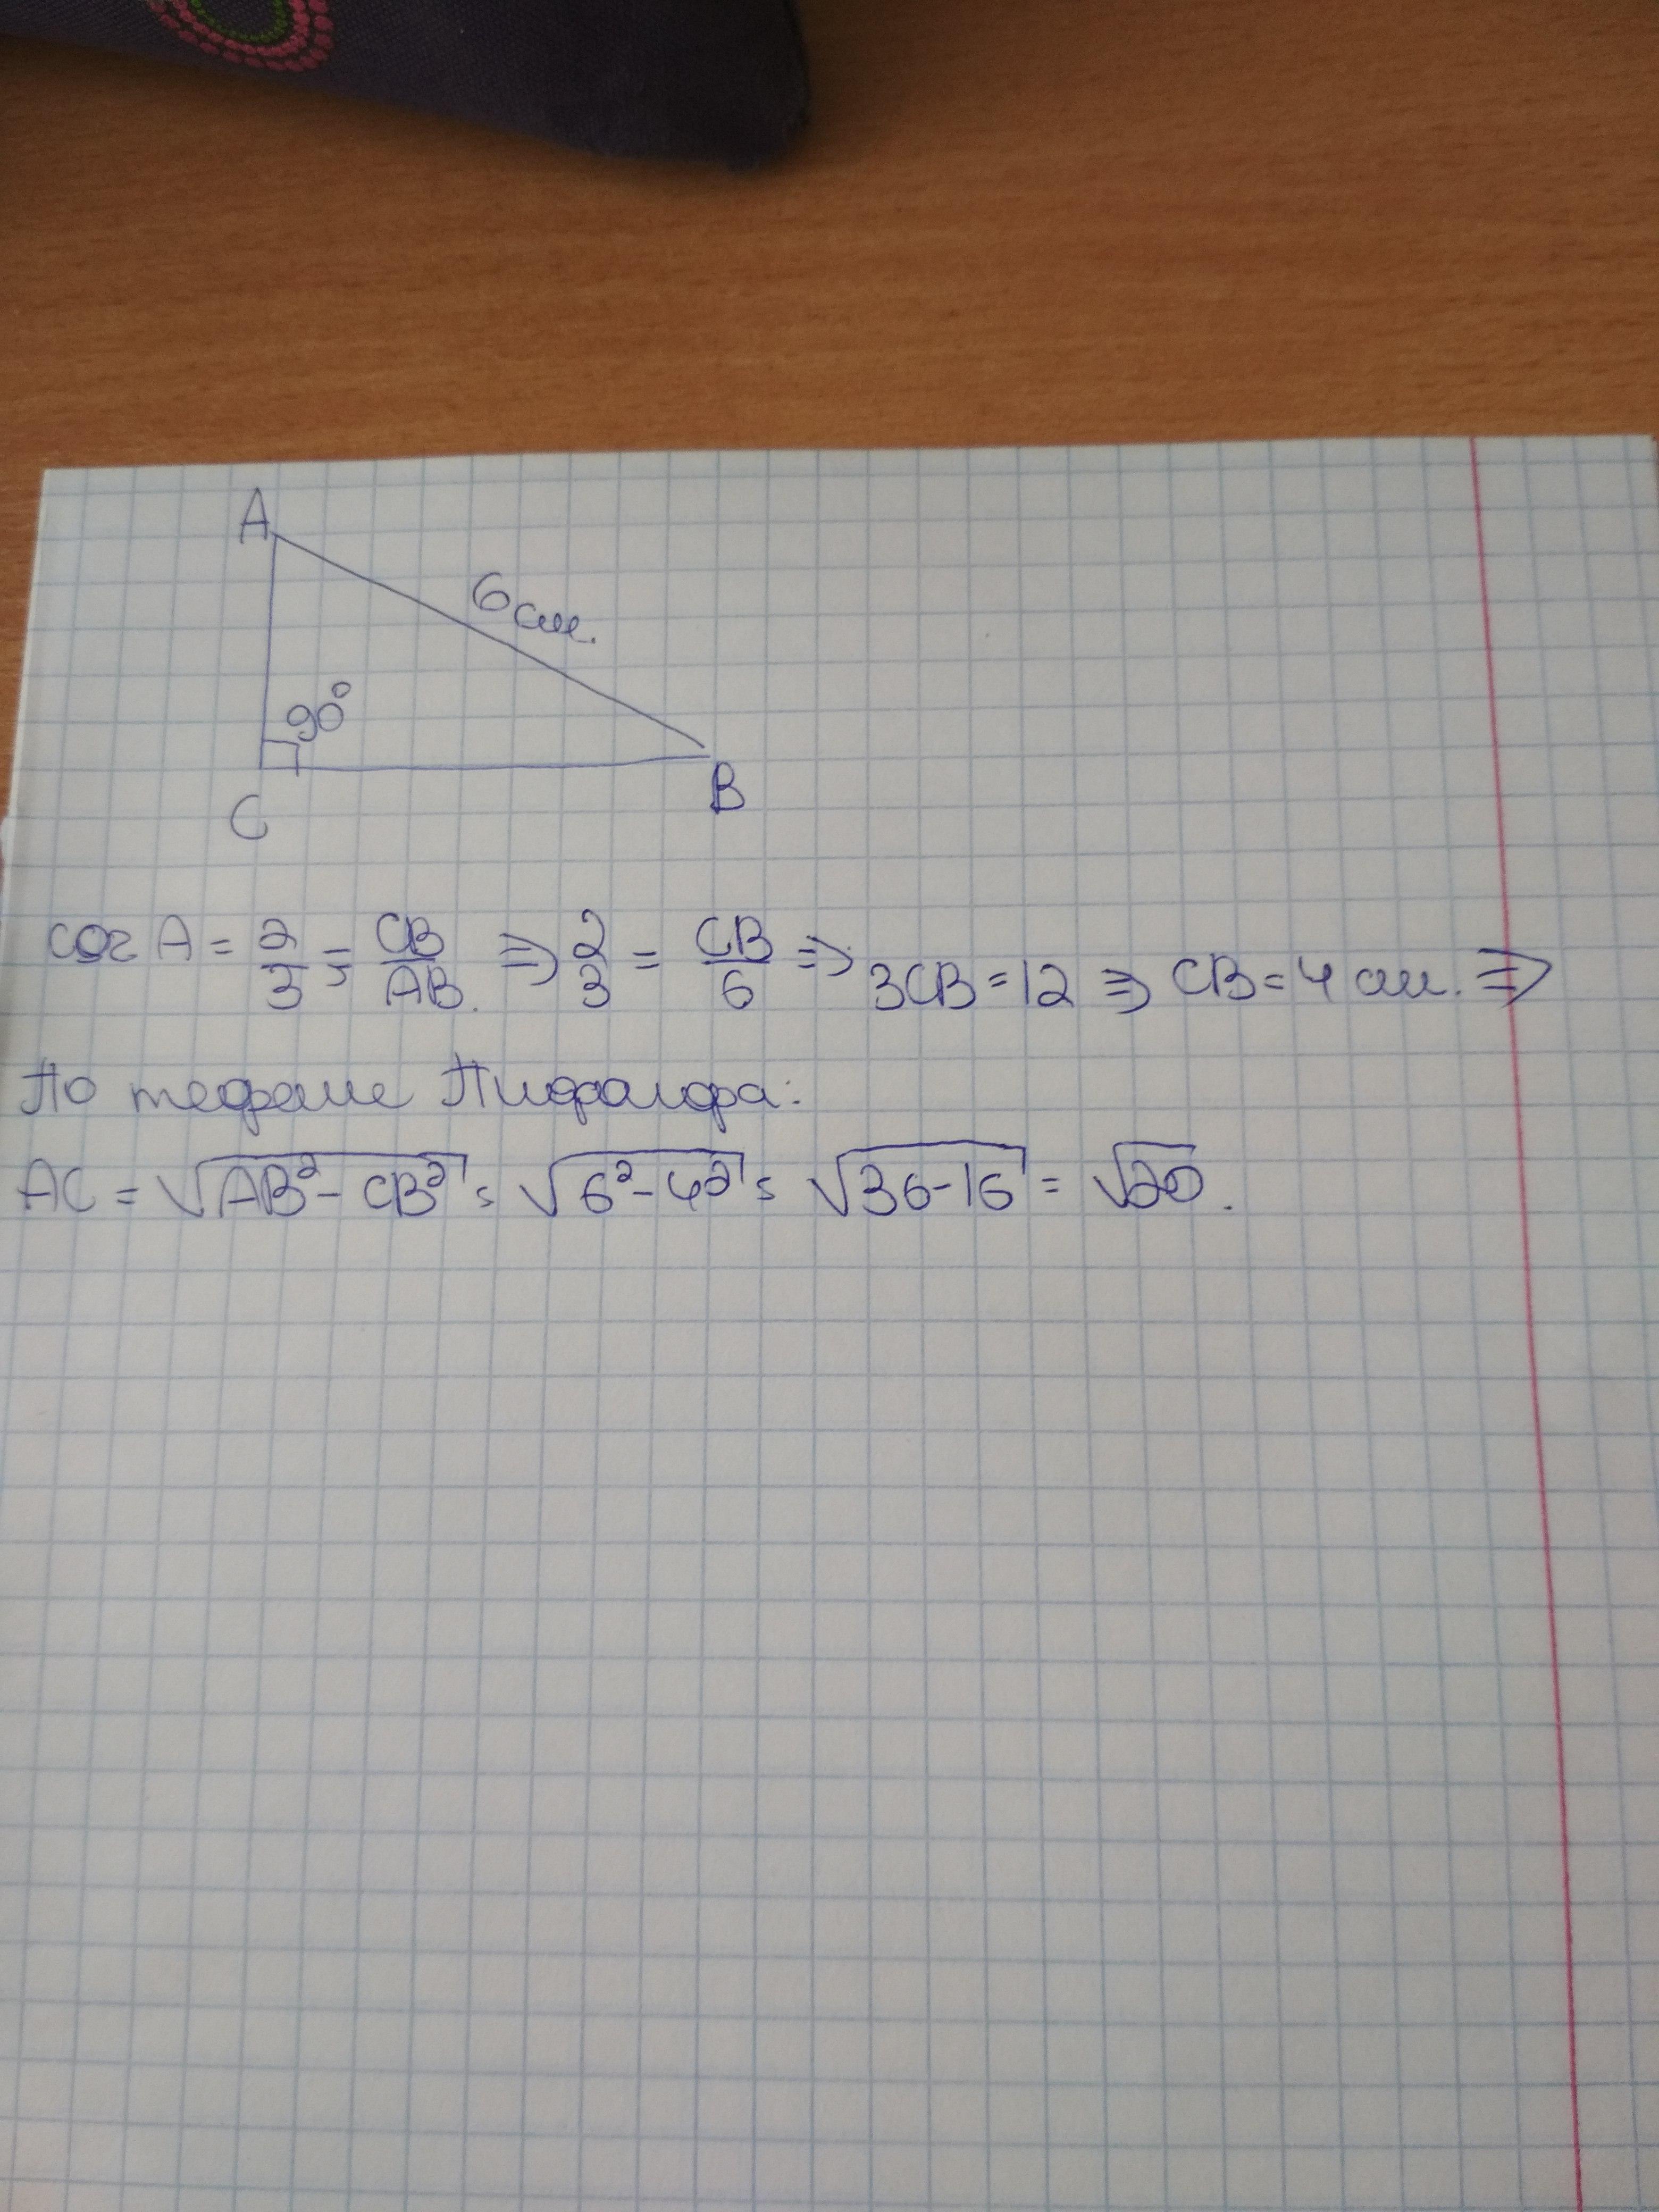 A
6 см.
90°
C
B
cos A = 2/3 = CB/AB. ⇒ 2/3 = CB/6 ⇒ 3CB = 12 ⇒ CB = 4 см. ⇒
По теореме Пифагора:
AC = √(AB² - CB²) = √(6² - 4²) = √(36-16) = √20.